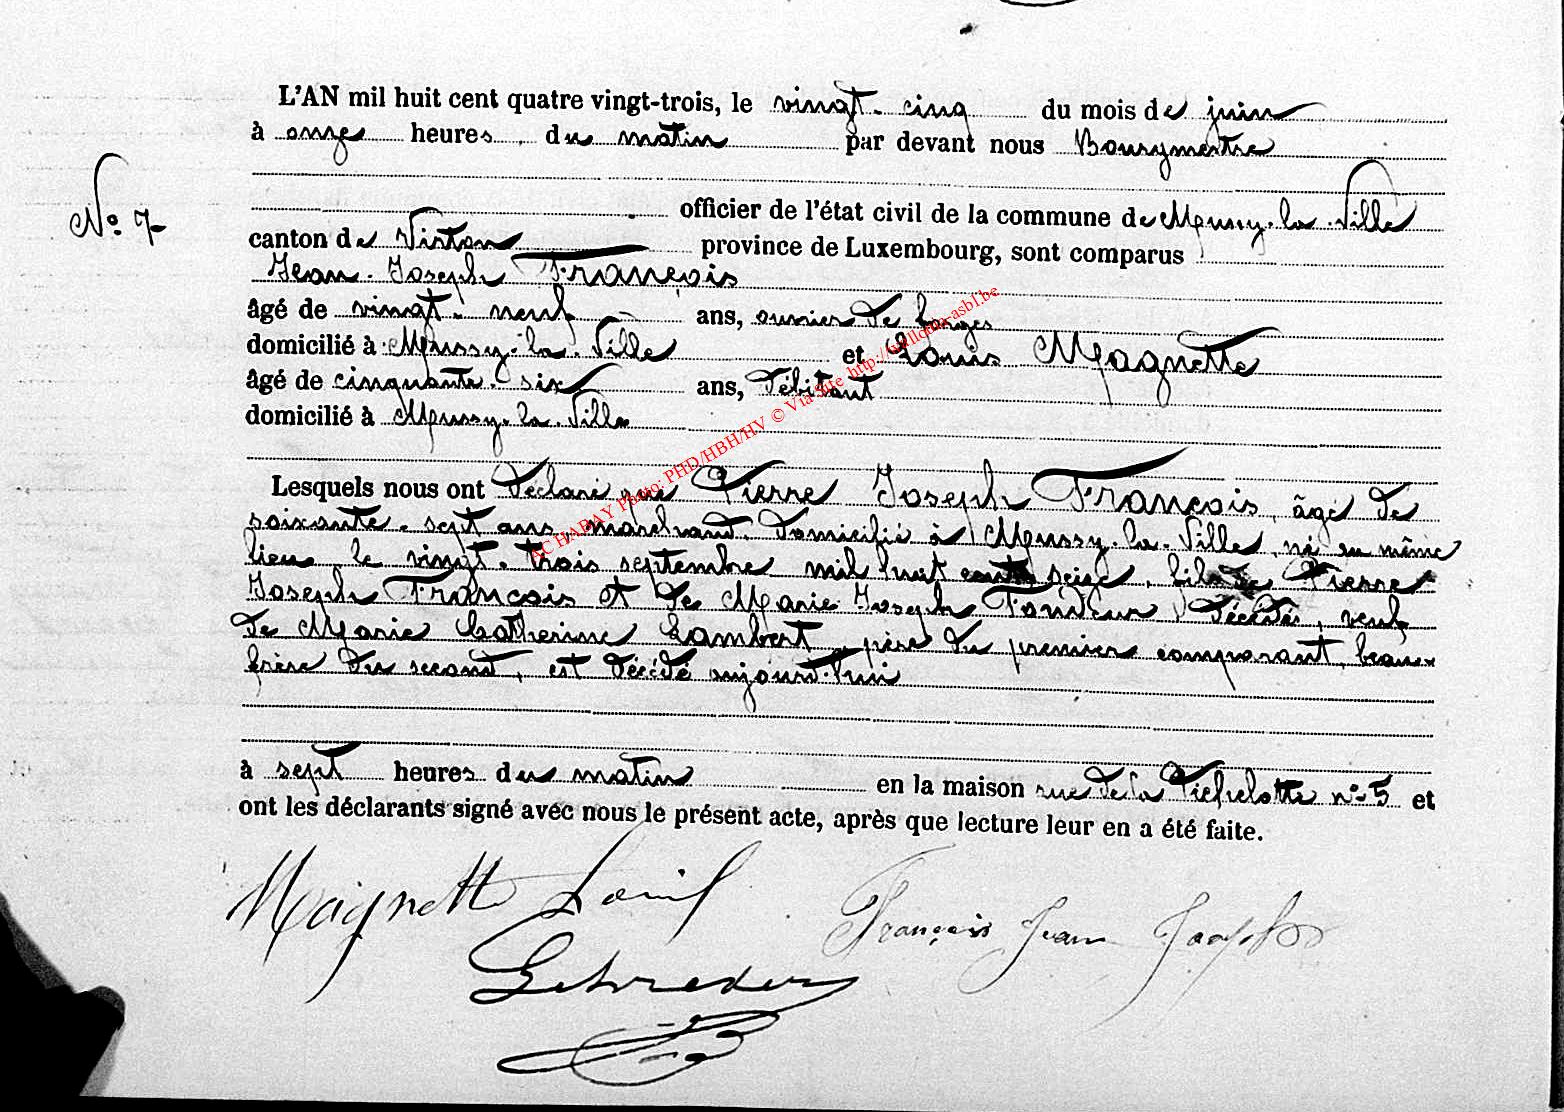 L'AN mil huit cent quatre vingt-trois, le vingt-cinq du mois de juin
à onze heures du matin par devant nous Bourgmestre
No 7
officier de l'état civil de la commune de Mussy-la-Ville
canton de Virton province de Luxembourg, sont comparus
Jean-Joseph François
âgé de vingt-neuf ans, ouvrier de forges
domicilié à Mussy-la-Ville et Louis Magnette
âgé de cinquante-six ans, débitant
domicilié à Mussy-la-Ville
Lesquels nous ont déclaré que Pierre Joseph François, âgé de
soixante-sept ans, marchand, domicilié à Mussy-la-Ville, né en même
lieu le vingt-trois septembre mil huit cent seize, fils de Pierre
Joseph François et de Marie Joseph décédés, veuf
de Marie Catherine Lambert, père du premier comparant, beau-
frère du second, est décédé aujourd'hui
à sept heures du matin en la maison rue de la n° 5 et
ont les déclarants signé avec nous le présent acte, après que lecture leur en a été faite.
Maignette Louis
François Jean Joseph
ACHABAY Photo: PHD/HBH/HV © Via Site